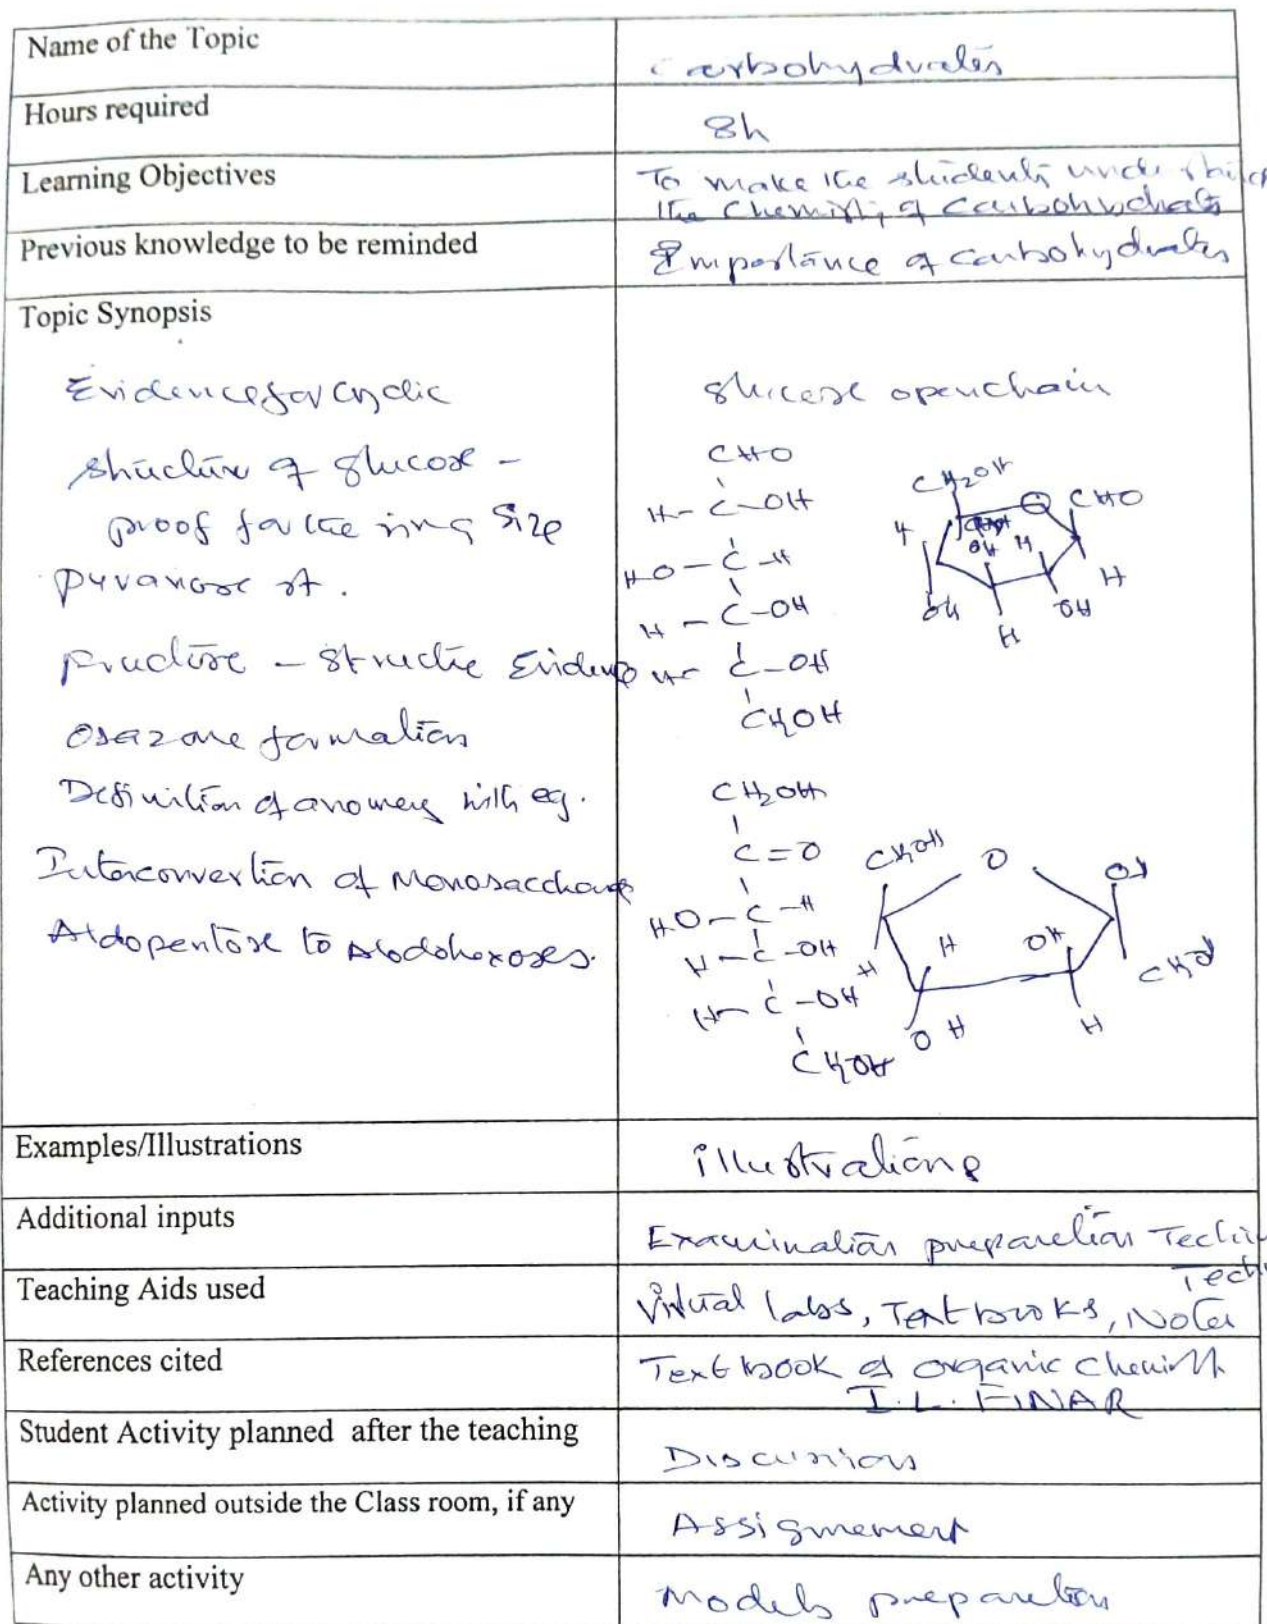 Name of the Topic
Carbohydrates
Hours required
8h
Learning Objectives
To make the students
the Chemistry of Carbohydrates
Previous knowledge to be reminded
Importance of carbohydrates
Topic Synopsis
Evidence for cyclic
structure of glucose -
proof for the ring size
pyranose st.
Fructose - structure Evidence
Osazone formation
Definition of anomers with eg.
Interconvertion of Monosaccha
Aldopentose to Alodohexoses.
glucose open chain
CHO
H - C - OH
HO - C - H
H - C - OH
C - OH
CH2OH
CH2OH
O
CHO
H
OH
H
OH
H
OH
H
CH2OH
C = O
HO - C - H
H - C - OH
H - C - OH
CH2OH
CH2OH
O
OH
H
H
OH
OH
H
Examples/Illustrations
illustrations
Additional inputs
Examination preparation
Teaching Aids used
Virtual labs, Text books, Notes
References cited
Text book of organic Chemist
I. L. FINAR
Student Activity planned after the teaching
Discussions
Activity planned outside the Class room, if any
Assignement
Any other activity
Models preparation